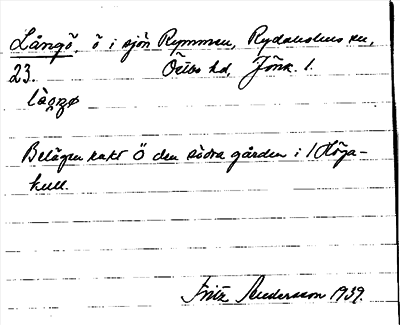 Långö, ö i sjön Rymmen, Rydaholms sn,
23. Östbo hd, Jönk. l.
låŋŋø
Belägen rakt Ö den södra gården i Höga-
kull.
Fritz Andersson 1939.